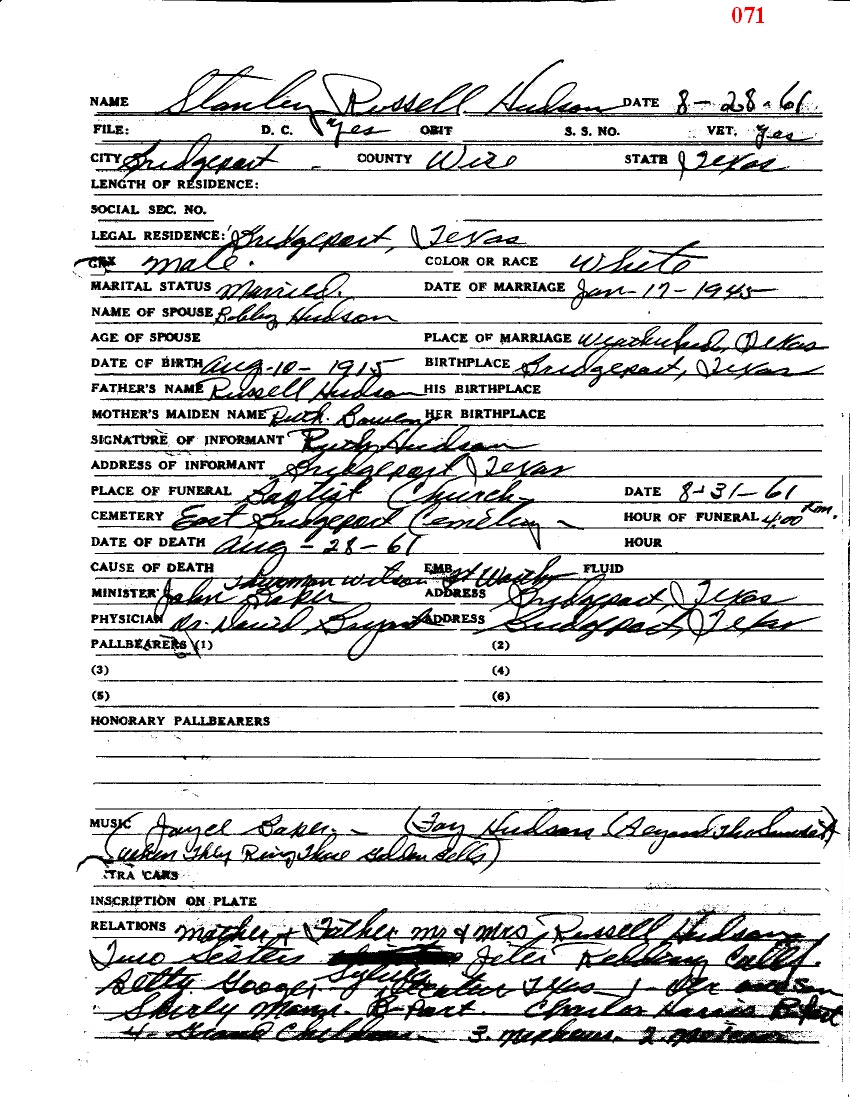 071
NAME Stanley Russell Hudson DATE 8-28-61
FILE: D. C. Yes OBIT S. S. NO. VET. Yes
CITY Bridgeport COUNTY Wise STATE Texas
LENGTH OF RESIDENCE:
SOCIAL SEC. NO.
LEGAL RESIDENCE: Bridgeport, Texas
SEX Male. COLOR OR RACE White
MARITAL STATUS Married. DATE OF MARRIAGE Jan-17-1945
NAME OF SPOUSE Bobby Hudson
AGE OF SPOUSE PLACE OF MARRIAGE Weatherford, Texas
DATE OF BIRTH Aug-10-1915 BIRTHPLACE Bridgeport, Texas
FATHER'S NAME Russell Hudson HIS BIRTHPLACE
MOTHER'S MAIDEN NAME Ruth HER BIRTHPLACE
SIGNATURE OF INFORMANT Ruth Hudson
ADDRESS OF INFORMANT Bridgeport, Texas
PLACE OF FUNERAL Baptist Church DATE 8-31-61
CEMETERY East Bridgeport Cemetery HOUR OF FUNERAL 4:00
DATE OF DEATH Aug-28-61 HOUR
CAUSE OF DEATH EMB. FLUID
Thurman Wilson Ft Worth
MINISTER John Baker ADDRESS Bridgeport, Texas
PHYSICIAN Dr. David Bryant ADDRESS Bridgeport, Texas
PALLBEARERS (1) (2)
(3) (4)
(5) (6)
HONORARY PALLBEARERS
MUSIC Baker - (Fay Hudson (Beyond The Sunset)
(When They Ring Those Golden Bells)
EXTRA CARS
INSCRIPTION ON PLATE
RELATIONS Mother & Father Mr & Mrs Russell Hudson
Two Sisters Jeter Redding Calif.
Betty Sylvia Texas 1-
Shirly Mann. B-Port. Charles Harris B-Port
4. Grand Children 3. nephews. 2.